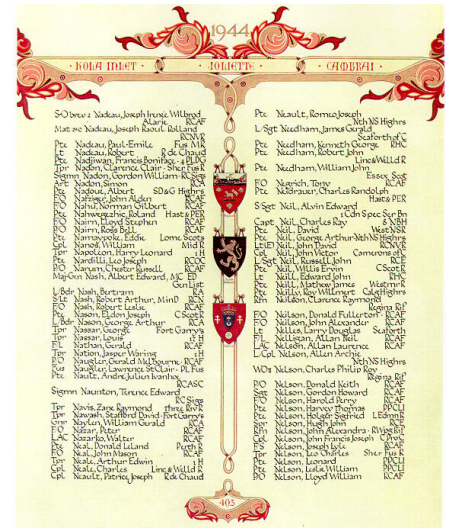 1944
· KOLA INLET · JOLIETTE · CAMBRAI ·
S/O brev 2 Nadeau, Joseph Irenée Wilbrod
Alarie RCAF
Mat 2/c Nadeau, Joseph Raoul Rolland
RCNVR
Pte Nadeau, Paul-Emile Fus MR
Lt Nadeau, Robert R de Chaud
Pte Nadjiwan, Francis Boniface · 4 PLDG
Tpr Nadon, Clarence Clair · Sher Fus R
Sigmn Nadon, Gordon William · RCSigs
Art Nadon, Simon RCA
Pte Nadout, Albert SD&G Highrs
F/O Nafziger, John Alden RCAF
F/O Nahu, Norman Gilbert RCAF
Pte Nahwegezhic, Roland Hast & PER
P/O Nairn, Lloyd Stephen RCAF
P/O Nairn, Ross Bell RCAF
Pte Namaypoke, Eddie Lorne Scots
Cpl Nanos, William Mid R
Tpr Napoleon, Harry Leonard 1 H
Pte Nardilli, Leo Joseph RCOC
P/O Narum, Chester Russell RCAF
Maj-Gen Nash, Albert Edward, MC ED
Gen List
L/Bdr Nash, Bertram RA
S/Lt Nash, Robert Arthur, MinD RCN
F/O Nash, Robert Leslie RCAF
Pte Nason, Eldon Joseph C Scot R
L/Bdr Nason, George Arthur RCA
Tpr Nassar, George Fort Garrys
Tpr Nassar, Louis 17 H
F/L Nathan, Gerald RCAF
Tpr Nation, Jasper Waring 1 H
P/O Naugler, Gerald Melbourne · RCAF
Fus Naugler, Lawrence St Clair · PL Fus
Pte Nault, André Julien Ivanhoe
RCASC
Sigmn Naunton, Terence Edward
RCSigs
Tpr Navis, Zane Raymond three Riv R
Tpr Nawash, Stafford David · Fort Garrys
Gnr Naylen, William Gerald RCA
F/O Nazar, Peter RCAF
LAC Nazarko, Walter RCAF
Pte Neal, Donald Leland Perth R
F/O Neal, John Mason RCAF
Tpr Neale, Arthur Edwin 1 H
Cpl Neale, Charles Linc & Welld R
Cpl Neault, Patrice Joseph R de Chaud
Pte Neault, Romeo Joseph
Nth NS Highrs
L/Sgt Needham, James Gerald
Seaforth of C
Pte Needham, Kenneth George RHC
Pte Needham, Robert John
Linc & Welld R
Pte Needham, William John
Essex Scot
F/O Negrich, Tony RCAF
Pte Neidrauer, Charles Randolph
Hast & PER
S/Sgt Neil, Alvin Edward
1 Cdn Spec Ser Bn
Capt Neil, Charles Ray 8 NBH
Pte Neil, David West NSR
Pte Neil, George Arthur · Nth NS Highrs
Lt(E) Neil, John David RCNVR
Cpl Neil, John Victor Camerons of C
L/Sgt Neil, Russell John RCE
Pte Neil, Willis Ervin C Scot R
Lt Neill, Edward John RHC
Pte Neill, Mathew James Westmr R
Pte Neilly, Roy Willmert Calg Highrs
Rfn Neilson, Clarence Raymond
Regina Rif
F/O Neilson, Donald Fullerton · RCAF
F/O Neilson, John Alexander RCAF
Lt Nelles, Larry Douglas Seaforth
F/L Nelligan, Allan Neil RCAF
LAC Nelson, Allan Laurence RCAF
L/Cpl Nelson, Allen Archie
Nth NS Highrs
WO1 Nelson, Charles Philip Roy
Regina Rif
P/O Nelson, Donald Keith RCAF
Sgt Nelson, Gordon Howard RCAF
F/O Nelson, Harold Perry RCAF
Pte Nelson, Harvey Thomas PPCLI
Pte Nelson, Holger Sigfried L Edmn R
Spr Nelson, Hugh John RCE
Rfn Nelson, John Alexandra · R Wpg Rif
Cpl Nelson, John Francis Joseph C Pro C
F/S Nelson, Joseph Lyle RCAF
Tpr Nelson, Leo Charles Sher Fus R
Pte Nelson, Leonard PPCLI
Pte Nelson, Leslie William PPCLI
P/O Nelson, Lloyd William RCAF
403